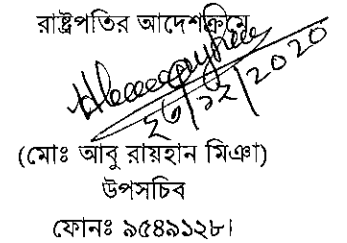 রাষ্ট্রপতির আদেশক্রমে
২৩/১২/২০২০
(মোঃ আবু রায়হান মিঞা)
উপসচিব
ফোনঃ ৯৫৪৯১২৮।